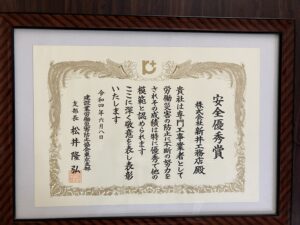 安全優秀賞
株式会社新井工務店殿
貴社は専門工事業者として
労働災害の防止に不断の努力を
されその成績は特に優秀で他の
模範と認められます
ここに深く敬意を表し表彰
いたします
令和四年六月八日
建設業労働災害防止協会東京支部
支部長 松井隆弘